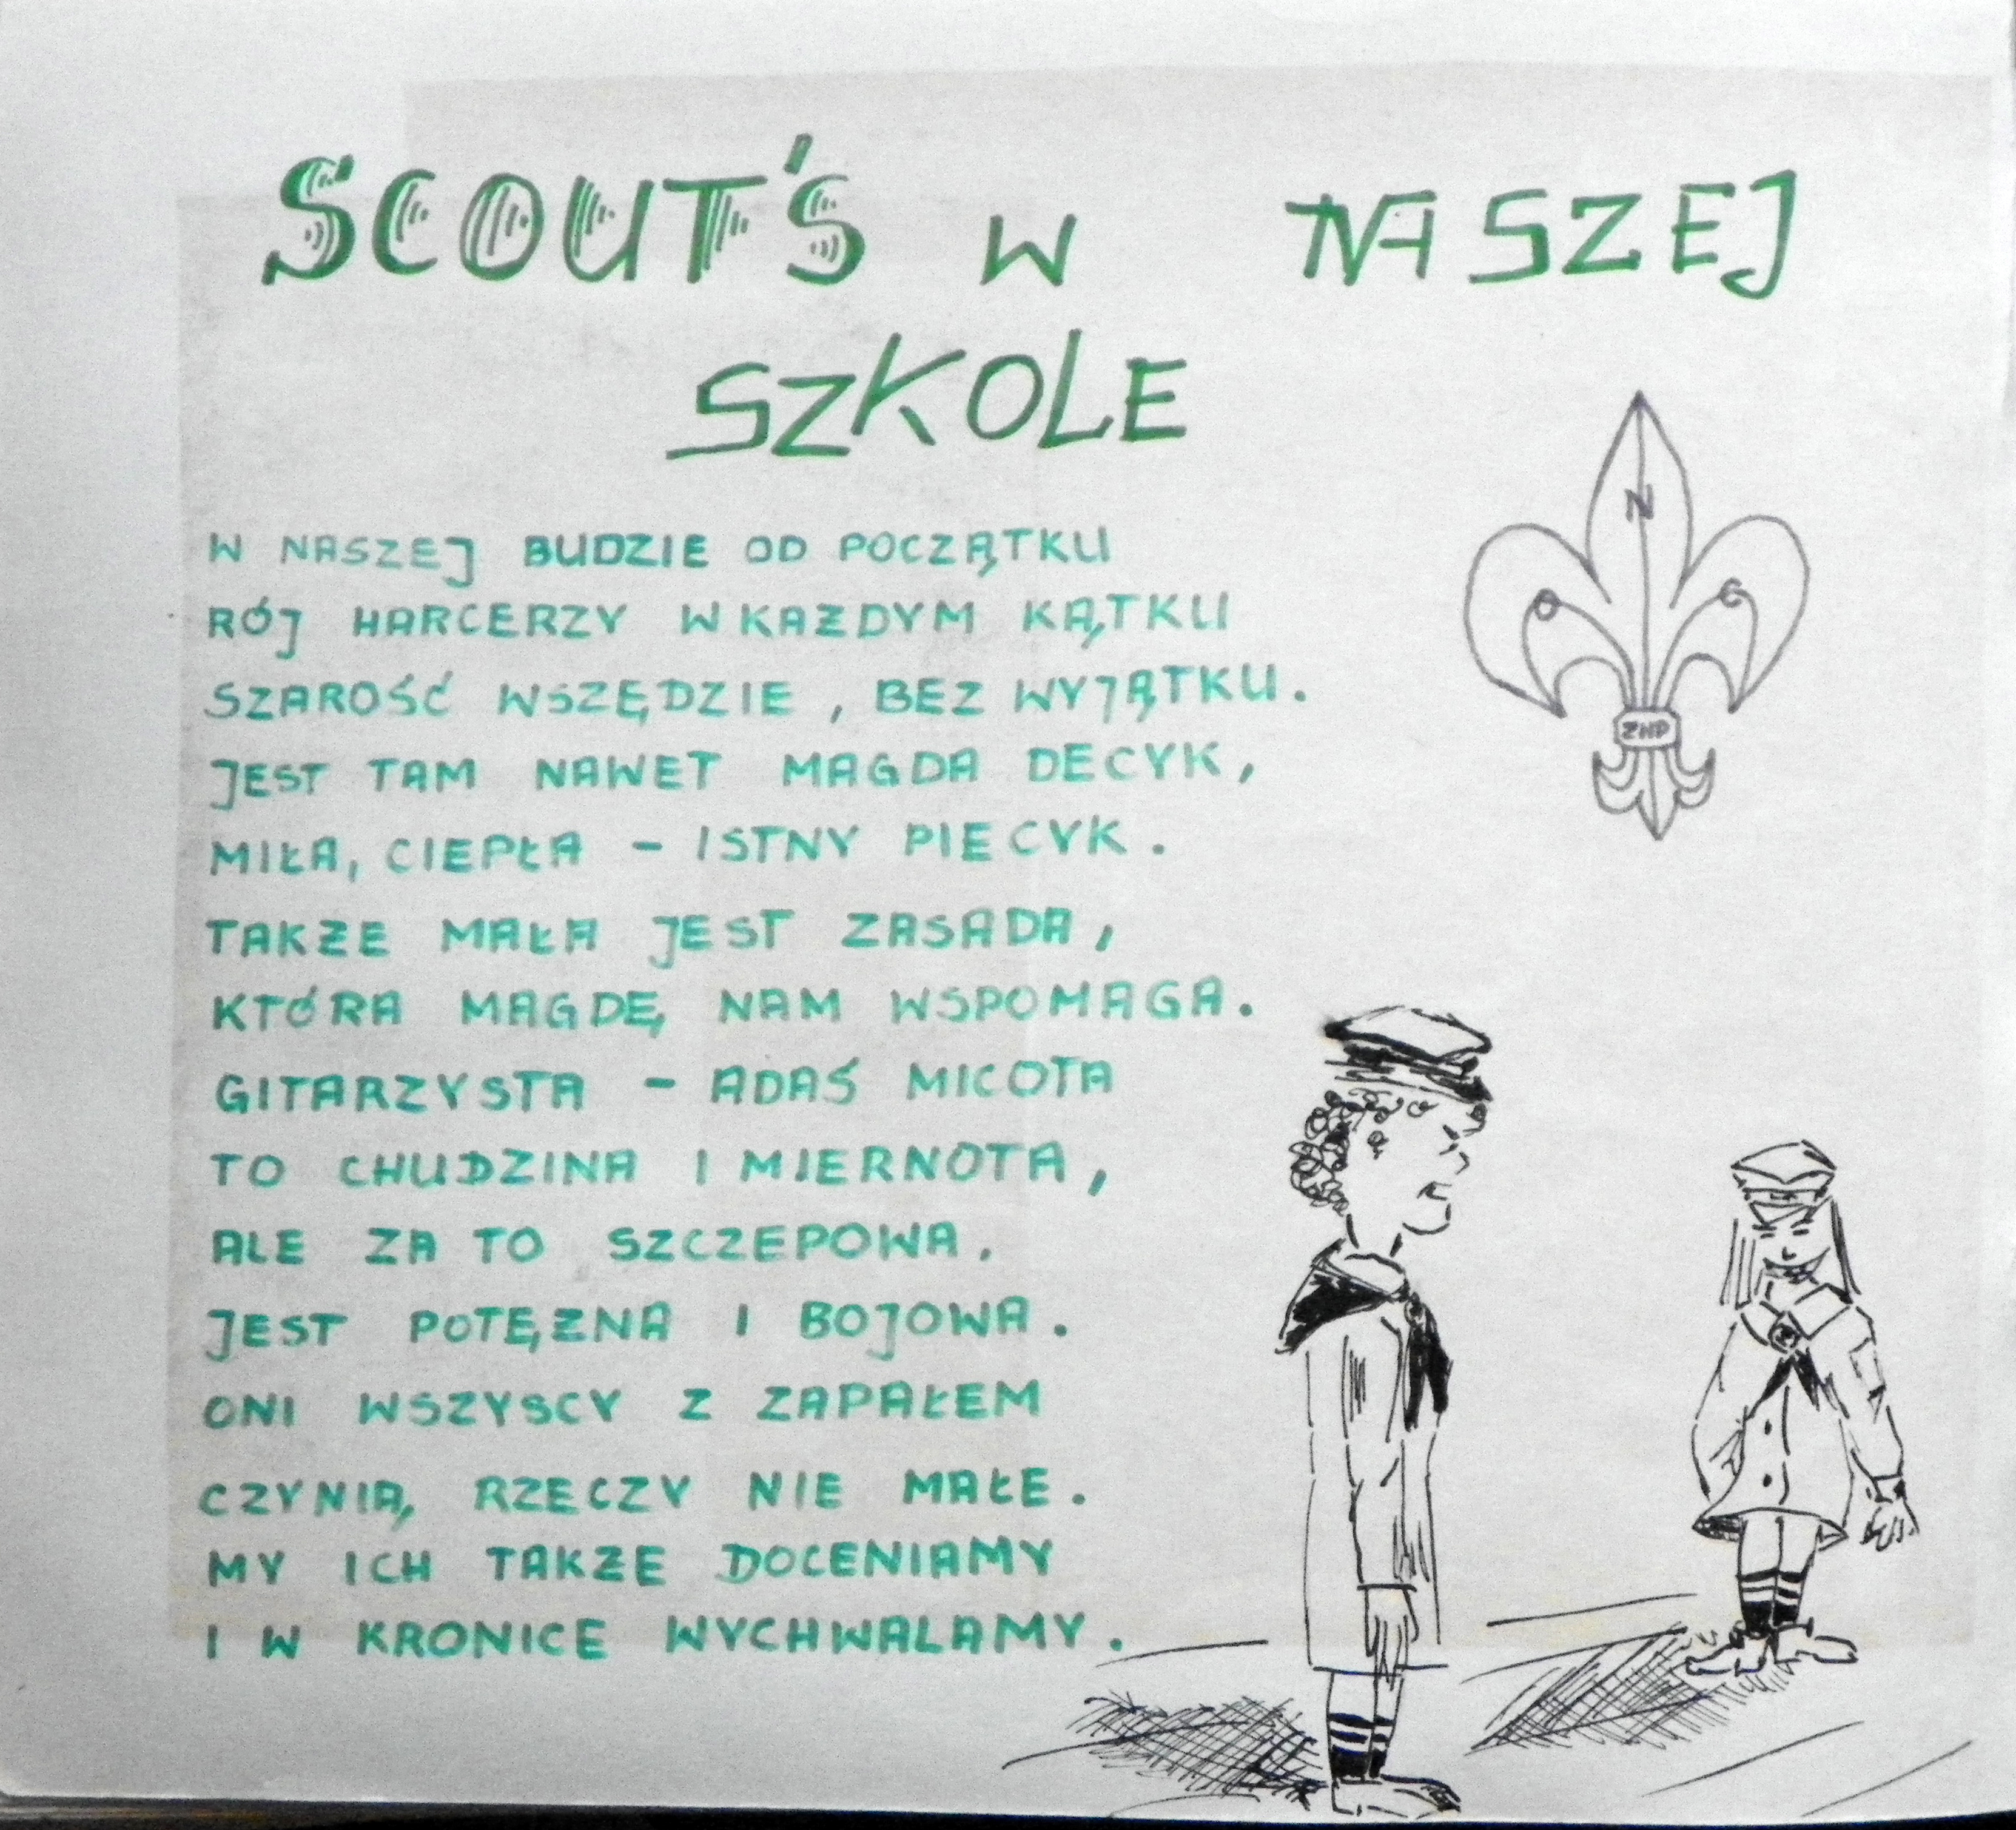 SCOUT'S W NASZEJ
SZKOLE
W NASZEJ BUDZIE OD POCZĄTKU
RÓJ HARCERZY W KAŻDYM KĄTKU
SZAROŚĆ WSZĘDZIE, BEZ WYJĄTKU.
JEST TAM NAWET MAGDA DECYK,
MIŁA, CIEPŁA - ISTNY PIECYK.
TAKŻE MAŁA JEST ZASADA,
KTÓRA MAGDĘ NAM WSPOMAGA.
GITARZYSTA - ADAŚ MICOTA
TO CHUDZINA I MIERNOTA,
ALE ZA TO SZCZEPOWA,
JEST POTĘŻNA I BOJOWA.
ONI WSZYSCY Z ZAPAŁEM
CZYNIĄ RZECZY NIE MAŁE.
MY ICH TAKŻE DOCENIAMY
I W KRONICE WYCHWALAMY.
N
O C
ZHP